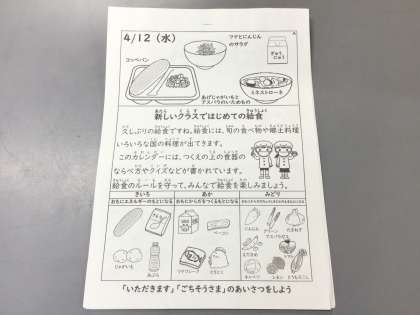 4/12（水）
ツナとにんじん
のサラダ
ぎゅう
にゅう
コッペパン
あげじゃがいもと
アスパラのいためもの
ミネストローネ
新しいクラスではじめての給食
久しぶりの給食ですね。給食には、旬の食べ物や郷土料理
いろいろな国の料理が出てきます。
このカレンダーには、つくえの上の食器の
ならべ方やクイズなどが書かれています。
給食のルールを守って、みんなで給食を楽しみましょう。
きいろ
あか
みどり
おもにエネルギーのもとになる
おもにからだをつくるもとになる
じゃがいも
あぶら
ツナフレーク
とりにく
にんじん
グリーン
アスパラガス
たまねぎ
トマト
キャベツ
レモン
とうもろこし
「いただきます」「ごちそうさま」のあいさつをしよう